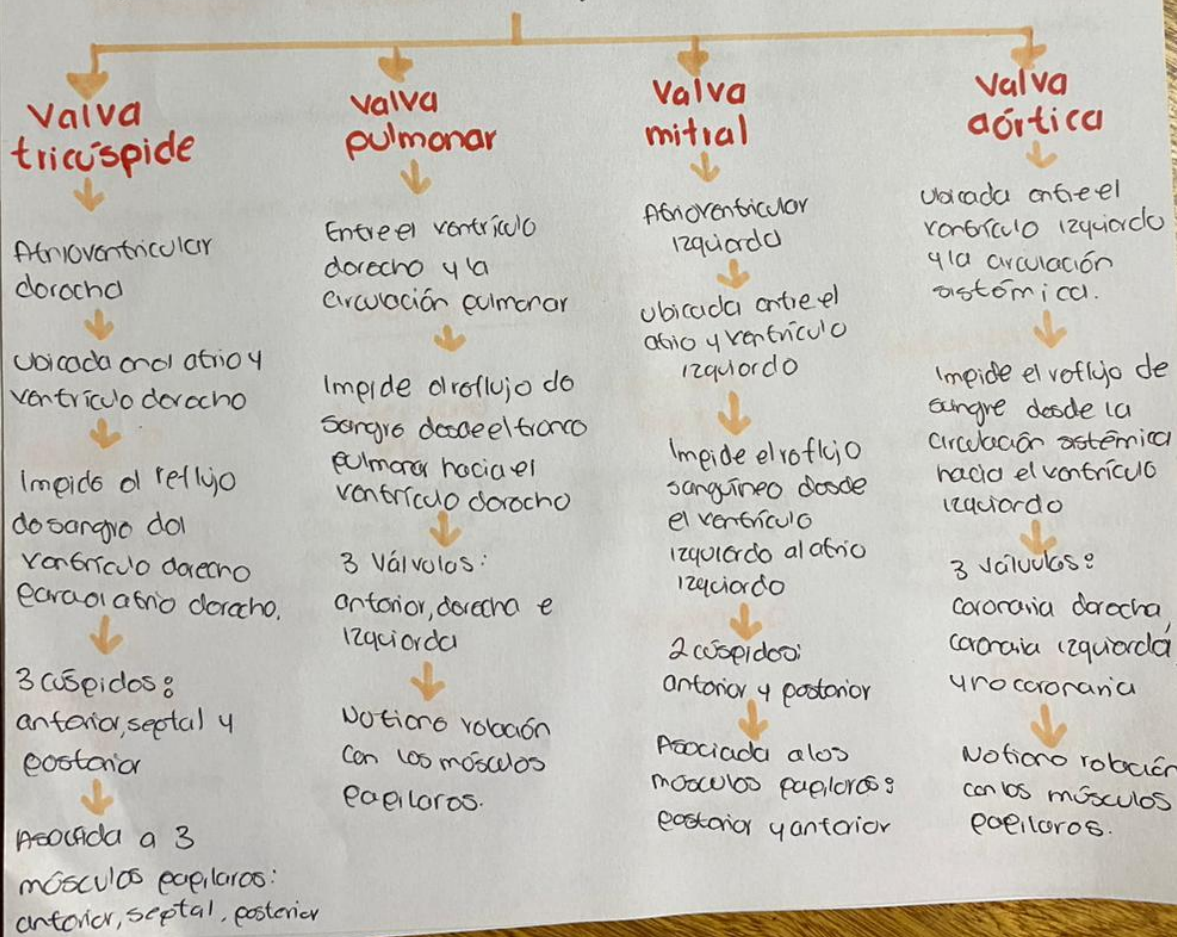 Valva
tricúspide
Atrioventricular
derecha
Ubicada en el atrio y
ventrículo derecho
Impide el reflujo
de sangre del
ventrículo derecho
para el atrio derecho.
3 cúspides:
anterior, septal y
posterior
Asociada a 3
músculos papilares:
anterior, septal, posterior
Valva
pulmonar
Entre el ventrículo
derecho y la
circulación pulmonar
Impide el reflujo de
sangre desde el tronco
pulmonar hacia el
ventrículo derecho
3 Válvulas:
anterior, derecha e
izquierda
No tiene relación
con los músculos
papilares.
Valva
mitral
Atrioventricular
izquierda
Ubicada entre el
atrio y ventrículo
izquierdo
Impide el reflujo
sanguíneo desde
el ventrículo
izquierdo al atrio
izquierdo
2 cúspides:
anterior y posterior
Asociada a los
músculos papilares:
posterior y anterior
Valva
aórtica
Ubicada entre el
ventrículo izquierdo
y la circulación
sistémica.
Impide el reflujo de
sangre desde la
circulación sistémica
hacia el ventrículo
izquierdo
3 válvulas:
coronaria derecha,
coronaria izquierda
y no coronaria
No tiene relación
con los músculos
papilares.